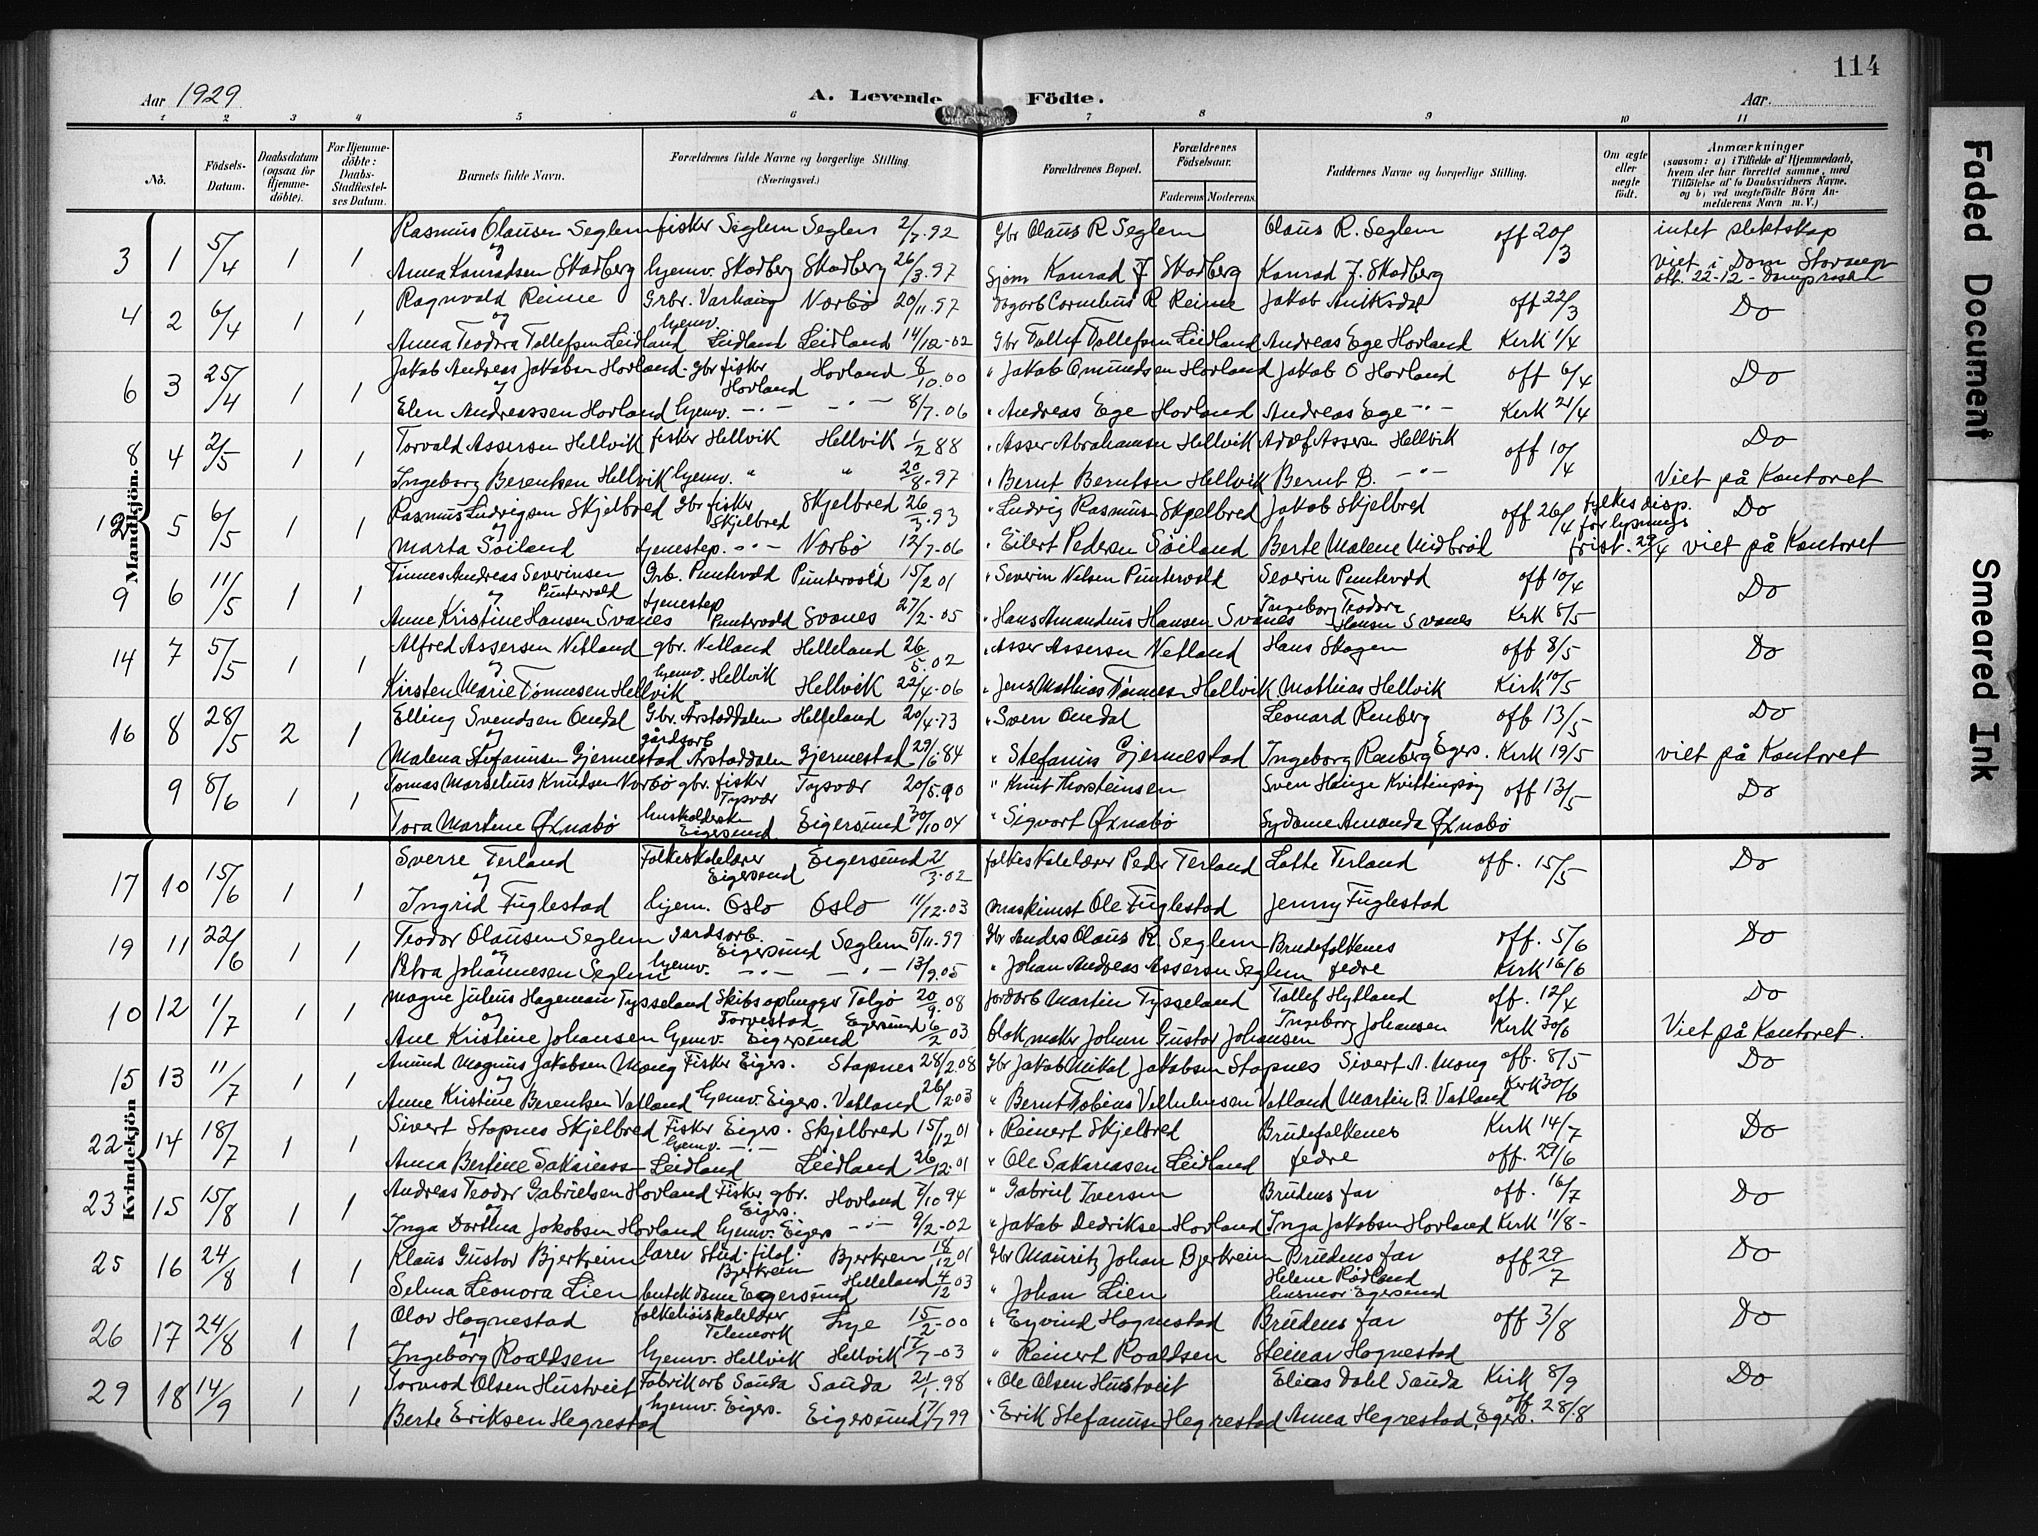 114
Aar 1929
A. Levende Födte.
Aar.
1 2 3 4 5 6 7 8 9 10 11
No.
Födsels-Datum.
Daabsdatum (ogsaa for Hjemme-döbte).
For Hjemme-döbte: Daabs-Stadfæstel-ses Datum.
Barnets fulde Navn.
Forældrenes fulde Navne og borgerlige Stilling (Næringsvei.)
Forældrenes Bopæl.
Forældrenes Födselsaar.
Faderens Moderens
Faddernes Navne og borgerlige Stilling.
Om ægte eller uægte födt.
Anmærkninger
(saasom: a) i Tilfælde af Hjemmedaab, hvem der har forrettet samme, med Tilföielse af to Daabsvidners Navne. og b) ved uægtefödte Börn An-melderens Navn m. V.)
Mandkjön.
3 1 5/4 1 1 Rasmus Olausen Seglem fisker Seglem Seglem 2/7.92 Gbr Olaus R Seglem Olaus R. Seglem off 20/3 intet slektskap
og
Anna Konradsen Skadberg hjemv. Skadberg Skadberg 26/3.97 Konrad J. Skadberg Konrad J. Skadberg viet i Dom
4 2 6/4 1 1 Ragnvald Reime Grbr. Varhaug Norbø 20/11.97 Cornelius R Reime Jakob off 22/3 Do
og
Anna Teodora Tollefsen Leidland hjemv. Leidland Leidland 14/12-02 Gbr Tollef Tollefsen Leidland Andreas Ege Hovland Kirk 1/4
6 3 25/4 1 1 Jakob Andreas Jakobsen Hovland gbr fisker Hovland Hovland 8/10.00 " Jakob Omundsen Hovland Jakob O Hovland off 6/4 Do
og
Elen Andreassen Hovland hjemv. -"- -"- 8/7.06 " Andreas Ege Hovland Andreas Ege -"- Kirk 21/4
8 4 2/5 1 1 Torvald Assersen Hellvik fisker Hellvik Hellvik 1/2 88 " Asser Abrahamsen Hellvik Adolf Assersen Hellvik off 10/4 Do
Ingeborg Berentsen Hellvik hjemv. " " 20/8.97 " Bernt Berntsen Hellvik Bernt B. -"- Viet på Kontoret
12 5 6/5 1 1 Rasmus Ludvigsen Skjelbred Gbr fisker Skjelbred Skjelbred 26/3.93 " Ludvig Rasmusen Skjelbred Jakob Skjelbred off 26/4 fylkes disp. for lysnings Do
og
Marta Søiland tjenestep. -"- Norbø 12/7.06 " Eilert Pedersen Søiland Berte Malene Midbrød frist. 29/4 viet på Kontoret
9 6 11/5 1 1 Tønnes Andreas Severinsen Puntervold Grb. Puntervold Puntervold 15/2 01 " Severin Nilsen Puntervold Severin Puntervold off 10/4 Do
og
Anne Kristine Hansen Svanes tjenestep Puntervold Svanes 27/2-05 " Hans Amandius Hansen Svanes Ingeborg Teodora Hansen Svanes Kirk 5/5
14 7 5/5 1 1 Alfred Assersen Netland gbr. Netland Helleland 26/5.02 " Asser Assersen Netland Hans Skogen off 8/5 Do
og
Kirsten Marie Tønnesen Hellvik hjemv. Hellvik Hellvik 22/4-06 " Jens Mathias Tønnesen Hellvik Mathias Hellvik Kirk 10/5
16 8 28/5 2 1 Elling Svendsen Omdal Gbr. Årstaddalen Helleland 20/4-73 " Sven Omdal Leonard Renberg off 13/5 Do
og
Malena Stefanusen Gjermestad gårdsarb Årstaddalen Gjermestad 29/6.84 " Stefanus Gjermestad Ingeborg Renberg Egers. Kirk 19/5 viet på Kontoret
9 8/6 1 1 Tomas Marselius Knudsen Norbø gbr. fisker Tysvær Tysvær 20/5.90 " Knut Thorsteinsen Sven Kvittingsøy off 13/5 Do
Tora Martine Øxnabø Eigersund Eigersund 30/10 04 " Sigvart Øxnabø Amanda Øxnabø
Kvindekjön
17 10 15/6 1 1 Sverre Terland Folkeskolelærer Eigersund Eigersund 21/3.02 folkeskolelærer Peder Terland Lotte Terland off. 15/5 Do
og
Ingrid Fuglestad hjem. Oslo Oslo 11/12.03 maskinist Ole Fuglestad Jenny Fuglestad
19 11 22/6 1 1 Teodor Olausen Seglem Gardsarb. Eigersund Seglem 5/11.99 Gbr Anders Olaus R. Seglem Brudefolkenes off. 5/6 Do
og
Petra Johannesen Seglem hjemv. -"- -"- 13/9.05 " Johan Andreas Assersen Seglem fedre Kirk 16/6
10 12 1/7 1 1 Magne Julius Hageman Tysseland Skibsophugger Torvestad Talgø 20/9.08 jordarb Martin Tysseland Tollef Hylland off. 12/4 Do
og
Ane Kristine Johansen hjemv. Eigersund Egersund 6/2 03 blokmaker Johan Gustav Johansen Ingeborg Johansen Kirk 30/6 Viet på Kontoret.
15 13 11/7 1 1 Amund Magnus Jakobsen Mong Fisker Eigers. Stapnes 28/2.08 Gbr Jakob Mikal Jakobsen Stapnes Sivert A. Mong off. 8/5 Do
og
Anne Kristine Berentsen Vatland hjemv. Eigers. Vatland 26/2.03 " Bernt Tobias Vilhelmsen Vatland Martin B. Vatland Kirk 30/6
22 14 18/7 1 1 Sivert Stapnes Skjelbred Fisker Eigers. Skjelbred 15/12 01 " Reinert Skjelbred Brudefolkenes Kirk 14/7 Do
Anna Bertine Sakariass. hjemv. -"- Leidland Leidland 26/12.01 " Ole Sakariasen Leidland fedre off. 29/6
23 15 15/8 1 1 Andreas Teodor Gabrielsen Hovland Fisker gbr. Eigers. Hovland 7/10 94 " Gabriel Iversen Brudens far off. 16/7 Do
og
Inga Dorthea Jakobsen Hovland hjemv. Eigers -"- 9/2.02 " Jakob Dedriksen Hovland Inga Jakobsen Hovland Kirk 11/8-
25 16 24/8 1 1 Klaus Gustav Bjerkreim Lærer stud. filol. Bjerkreim Bjerkrem 18/12 01 Gbr Mauritz Johan Bjerkreim Brudens far off 29/7 Do
Selma Leonora Lien butikdame Egersund Helleland 4/12 03 " Johan Lien Helene Rødland husmor Egersund
26 17 24/8 1 1 Olav Hognestad folkehøiskolelærer Telemark Lye 15/2-00 " Eyvind Hognestad Brudens far off 3/8 Do
og
Ingeborg Roaldsen hjemv. Hellvik Hellvik 17/7-03 " Reinert Roaldsen Steinar Hognestad
29 18 14/9 1 1 Tormod Olsen Hustveit Fabrikarb Sauda Sauda 21/1.98 " Ole Olsen Hustveit Elias Dahl Sauda Kirk 8/9 Do
Berte Eriksen Hegrestad hjemv. Eigers. Eigersund 17/7 99 " Erik Stefanusen Hegrestad Anna Hegrestad, Egers. off 28/8
Faded Document
Smeared Ink